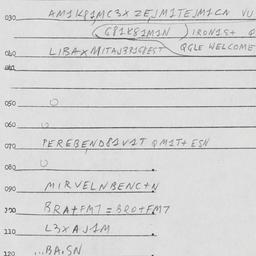 030 AM1K81MC3X ZEJM1TEJM1CN VU
G81K81M1N IRON1S+ Q
040 LIBAXMITAJ3R1G8EST QGLE WELCOME
050
060
070 PEREBEND81V1T QM1T+ ESN
080
090 MIRVELNBENC+N
100 BRA+FM7 = BRO+FM7
110 L3XAJ1M
120 ...BA,SN